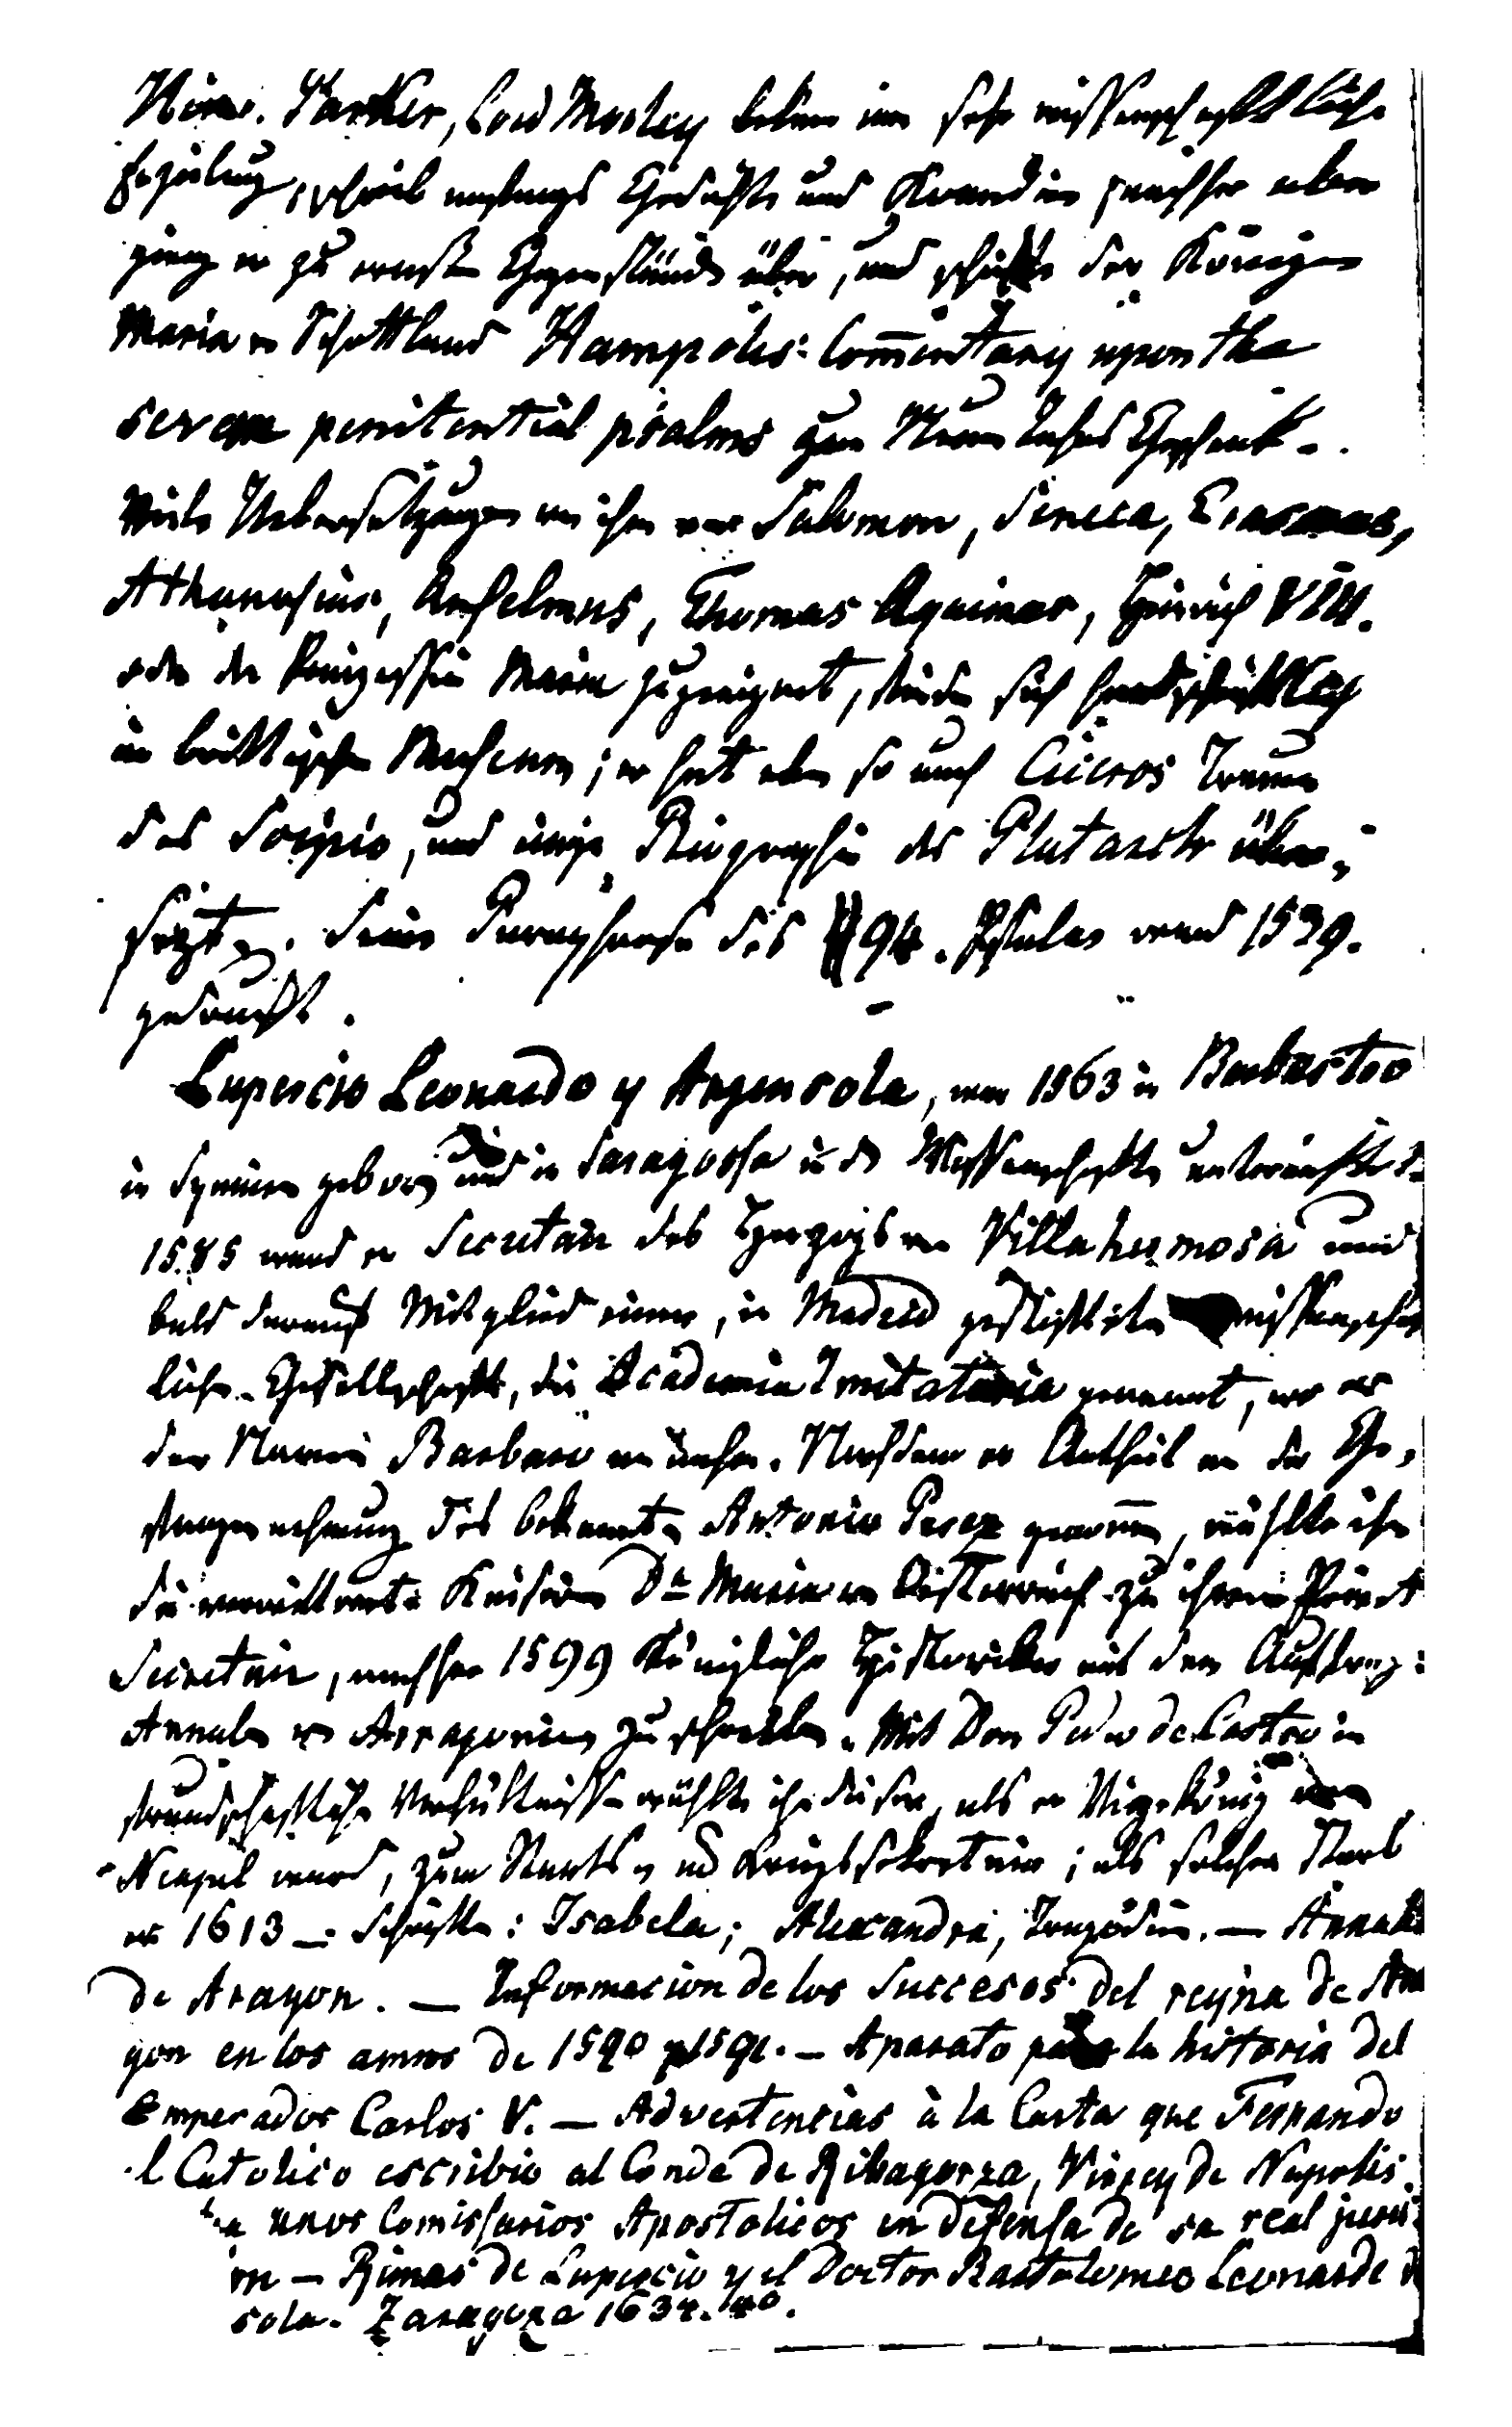 Henr. Parker, Lord Morley bekam eine sehr wissenschaftliche
Erziehung, schrieb anfangs Gedichte und Komödien nachher aber
ging er zu ernsten Gegenständen über, und schickte der Königin
Maria v. Schottland Hampoles Commentary upon the
seven penitential psalms zum Neuen Jahrs Geschenk.
Viele Uebersetzungen von ihm von Salomon, Seneca, Erasmus,
Athanasius, Anselmus, Thomas Aquinas, Heinrich VIII.
oder der Prinzessin Maria zugeeignet, finden sich handschriftlich
im brittischen Museum; er hat eben so auch Ciceros Traum
des Scipio, und einige Biographien des Plutarch über-
setzt. Seine Paraphrase des 94. Psalms ward 1539.
gedruckt.
Lupercio Leonardo y Argensola, war 1563 in Barbastro
in Spanien geboren und in Saragossa in d. Wissenschaften unterrichtet.
1585 ward er Secretair des Herzogs von Villahermosa und
bald darauf Mitglied einer, in Madrid gestifteten wissenschaft
lichen Gesellschaft, die Academia Imitatoria genannt, wo er
den Namen Barbaro annahm. Nachdem er Antheil an der Ge-
fangennehmung des bekannten Antonio Perez genommen, wählte ihn
die verwittwete Kaiserin Da Maria von Oisterreich zu ihrem Privat
Secretair, nachher 1599 Königlicher Historiker mit dem Auftrag:
Annalen von Arragonien zu schreiben. Mit Don Pedro de Castro in
freundschaftlichen Verhältnissen wählte ihn dieser, als er Vizekönig von
Neapel ward, zum Staats- und Kriegssekretair; als solcher starb
er 1613 — Schriften: Isabela; Alexandra, Tragödien. — Annales
de Aragon. — Informacion de los Successos del reyna de Ara
gon en los annos de 1590 y 1591. — Aparato para la historia del
Emperador Carlos V. — Advertencias à la Carta que Fernando
el Catolico escribio al Conde de Ribagorza, Virrey de Napolis.
unos Comissarios Apostolicos en defensa de sa real juris
on — Rimas de Lupercio y el Doctor Bartolomeo Leonardo d
sola. Zaragoza 1634. 4o.